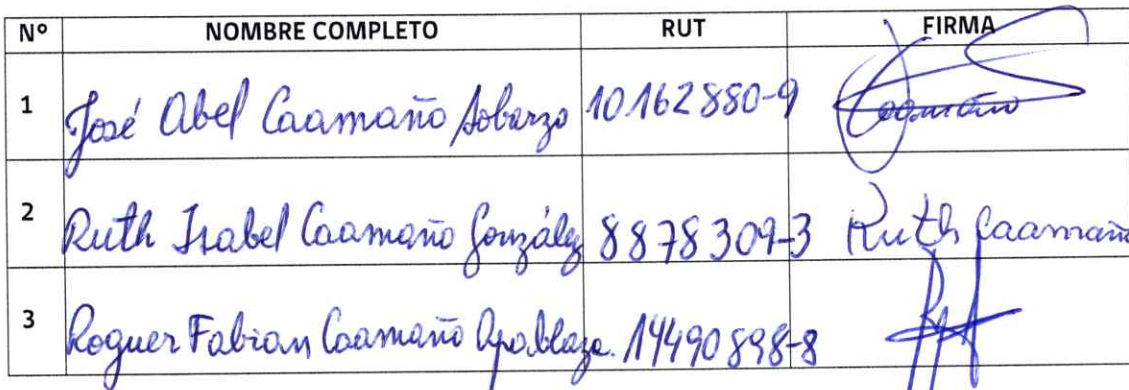 Nº NOMBRE COMPLETO RUT FIRMA
1 José Abel Caamaño Sobarzo 10162880-9 Caamaño
2 Ruth Isabel Caamaño González 8878309-3 Ruth Caamaño
3 Roguer Fabian Caamaño Apablaza. 14490898-8